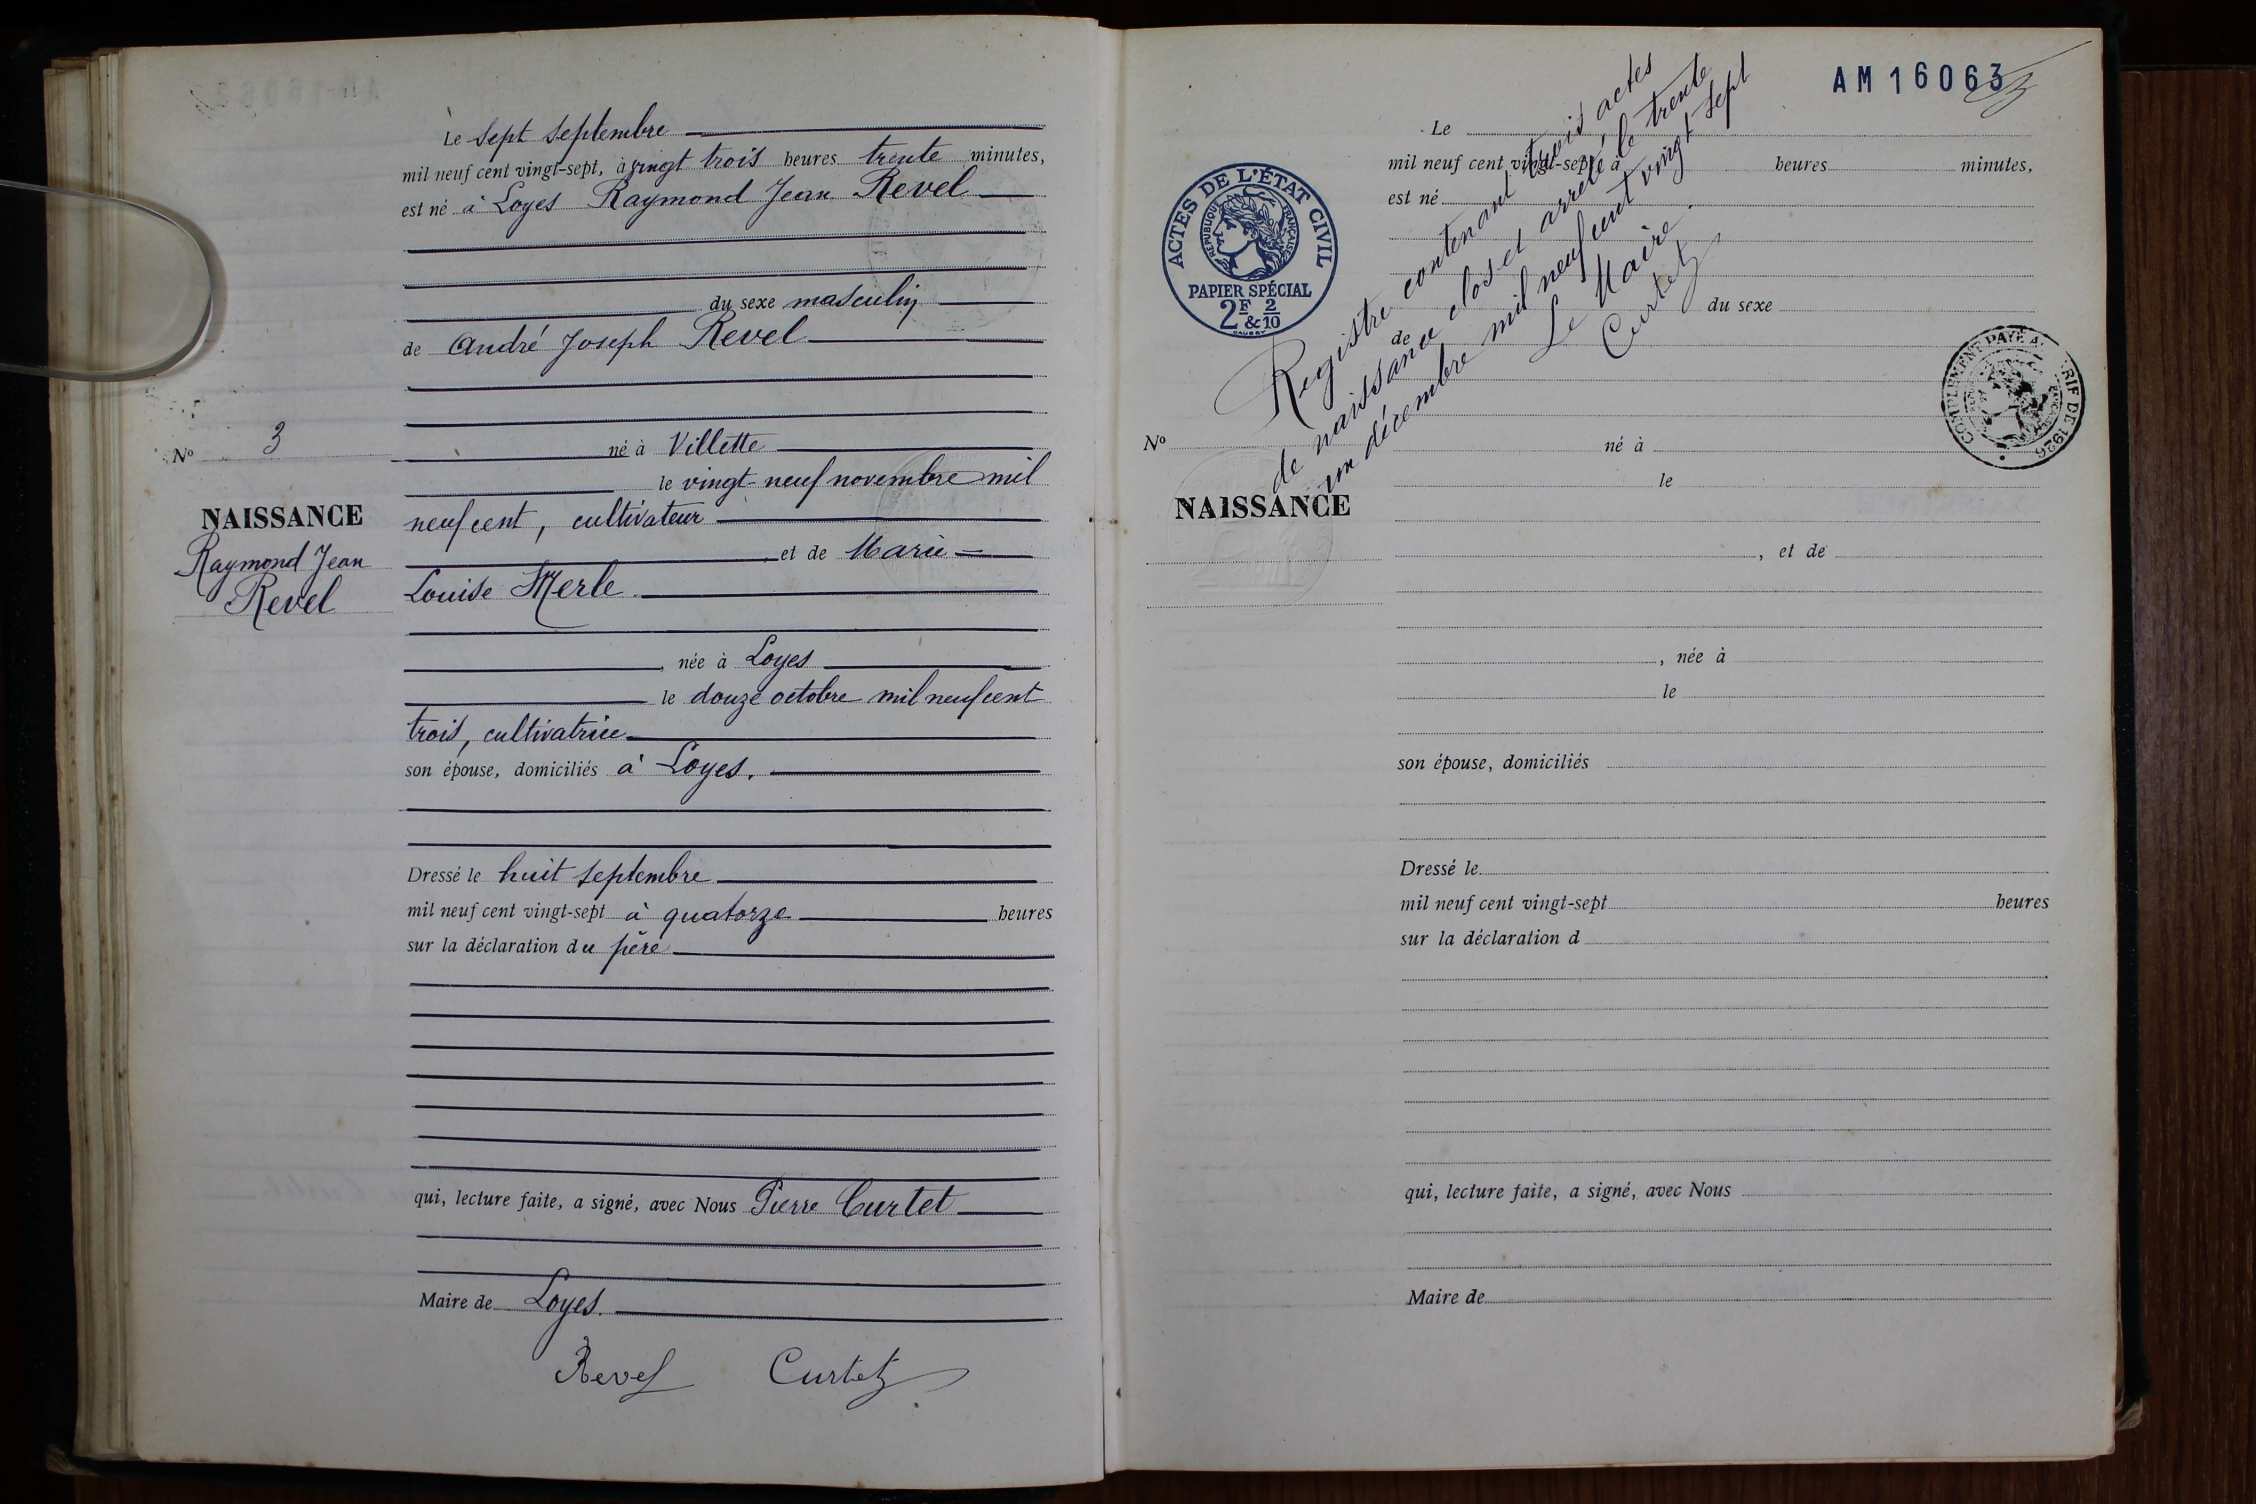 Le sept septembre
mil neuf cent vingt-sept, à vingt trois heures trente minutes,
est né à Loyes Raymond Jean Revel
du sexe masculin
de André Joseph Revel
né à Villette
le vingt-neuf novembre mil
neuf cent, cultivateur
et de Marie-
Louise Merle
née à Loyes
le douze octobre mil neuf cent
trois, cultivatrice
son épouse, domiciliés à Loyes.
Dressé le huit septembre
mil neuf cent vingt-sept à quatorze heures
sur la déclaration du père
qui, lecture faite, a signé, avec Nous Pierre Curtet
Maire de Loyes.
Revel Curtet
No 3
NAISSANCE
Raymond Jean
Revel
AM 16063
ACTES DE L'ÉTAT CIVIL
RÉPUBLIQUE FRANÇAISE
PAPIER SPÉCIAL
2F & 2/10
Registre contenant trois actes
de naissance clos et arrêté le trente
un décembre mil neuf cent vingt sept
Le Maire.
Curtet
COMPLÉMENT PAYÉ AU TARIF DE 1926
Le
mil neuf cent vingt-sept, à heures minutes,
est né
du sexe
de
No
NAISSANCE
né à
le
, et de
, née à
le
son épouse, domiciliés
Dressé le
mil neuf cent vingt-sept heures
sur la déclaration d
qui, lecture faite, a signé, avec Nous
Maire de